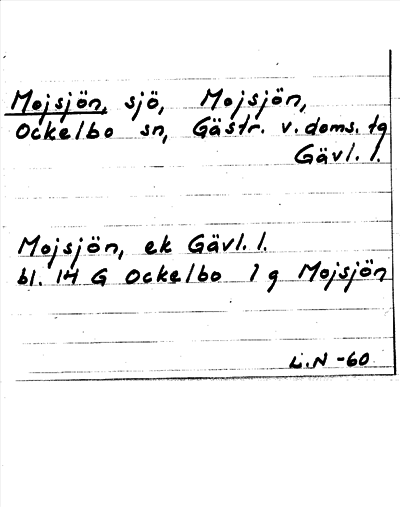 Mojsjön, sjö, Mojsjön,
Ockelbo sn, Gästr. v. doms. tg
Gävl. l.
Mojsjön, ek Gävl. l.
bl. 14 G Ockelbo 1 g Mojsjön
L.N -60